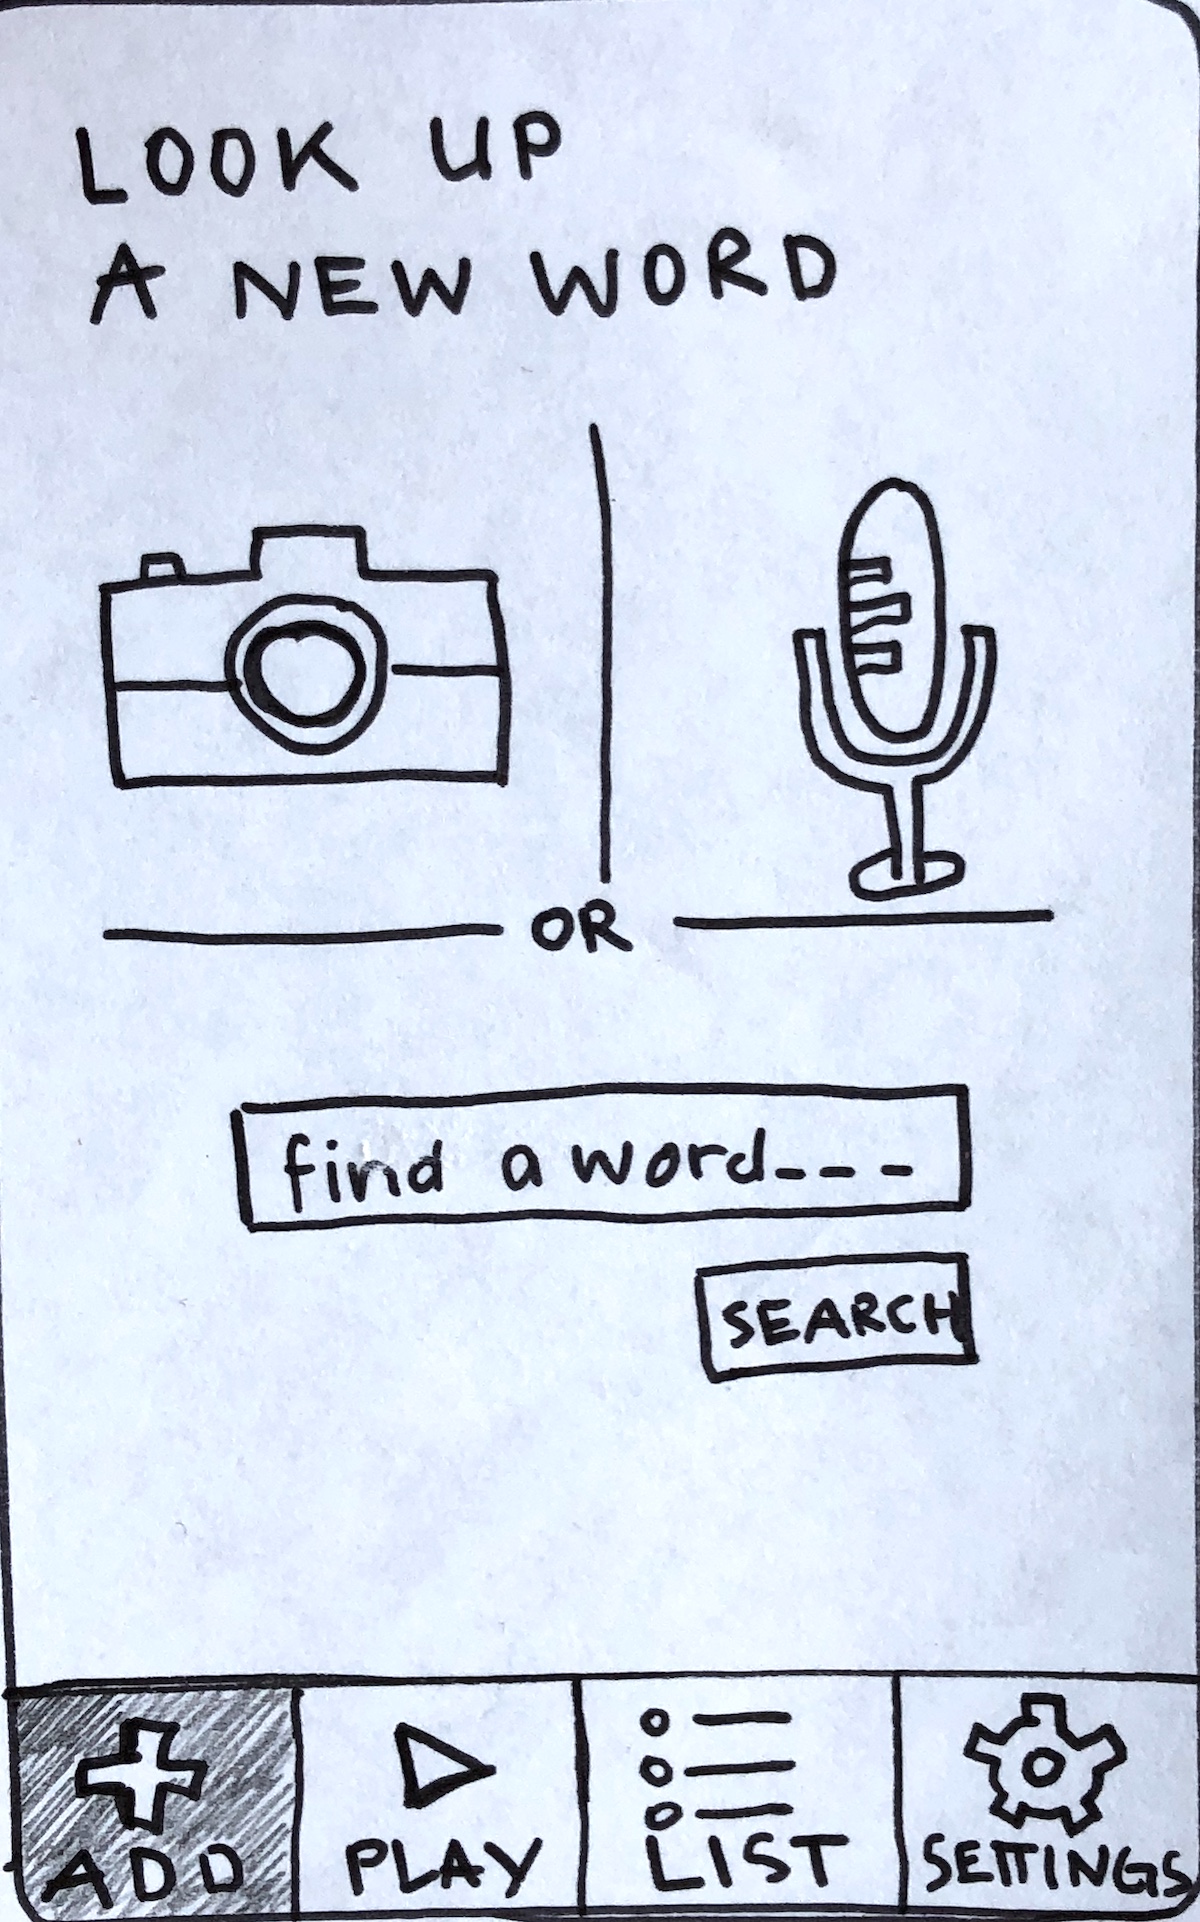 LOOK UP
A NEW WORD
OR
find a word---
SEARCH
ADD
PLAY
LIST
SETTINGS